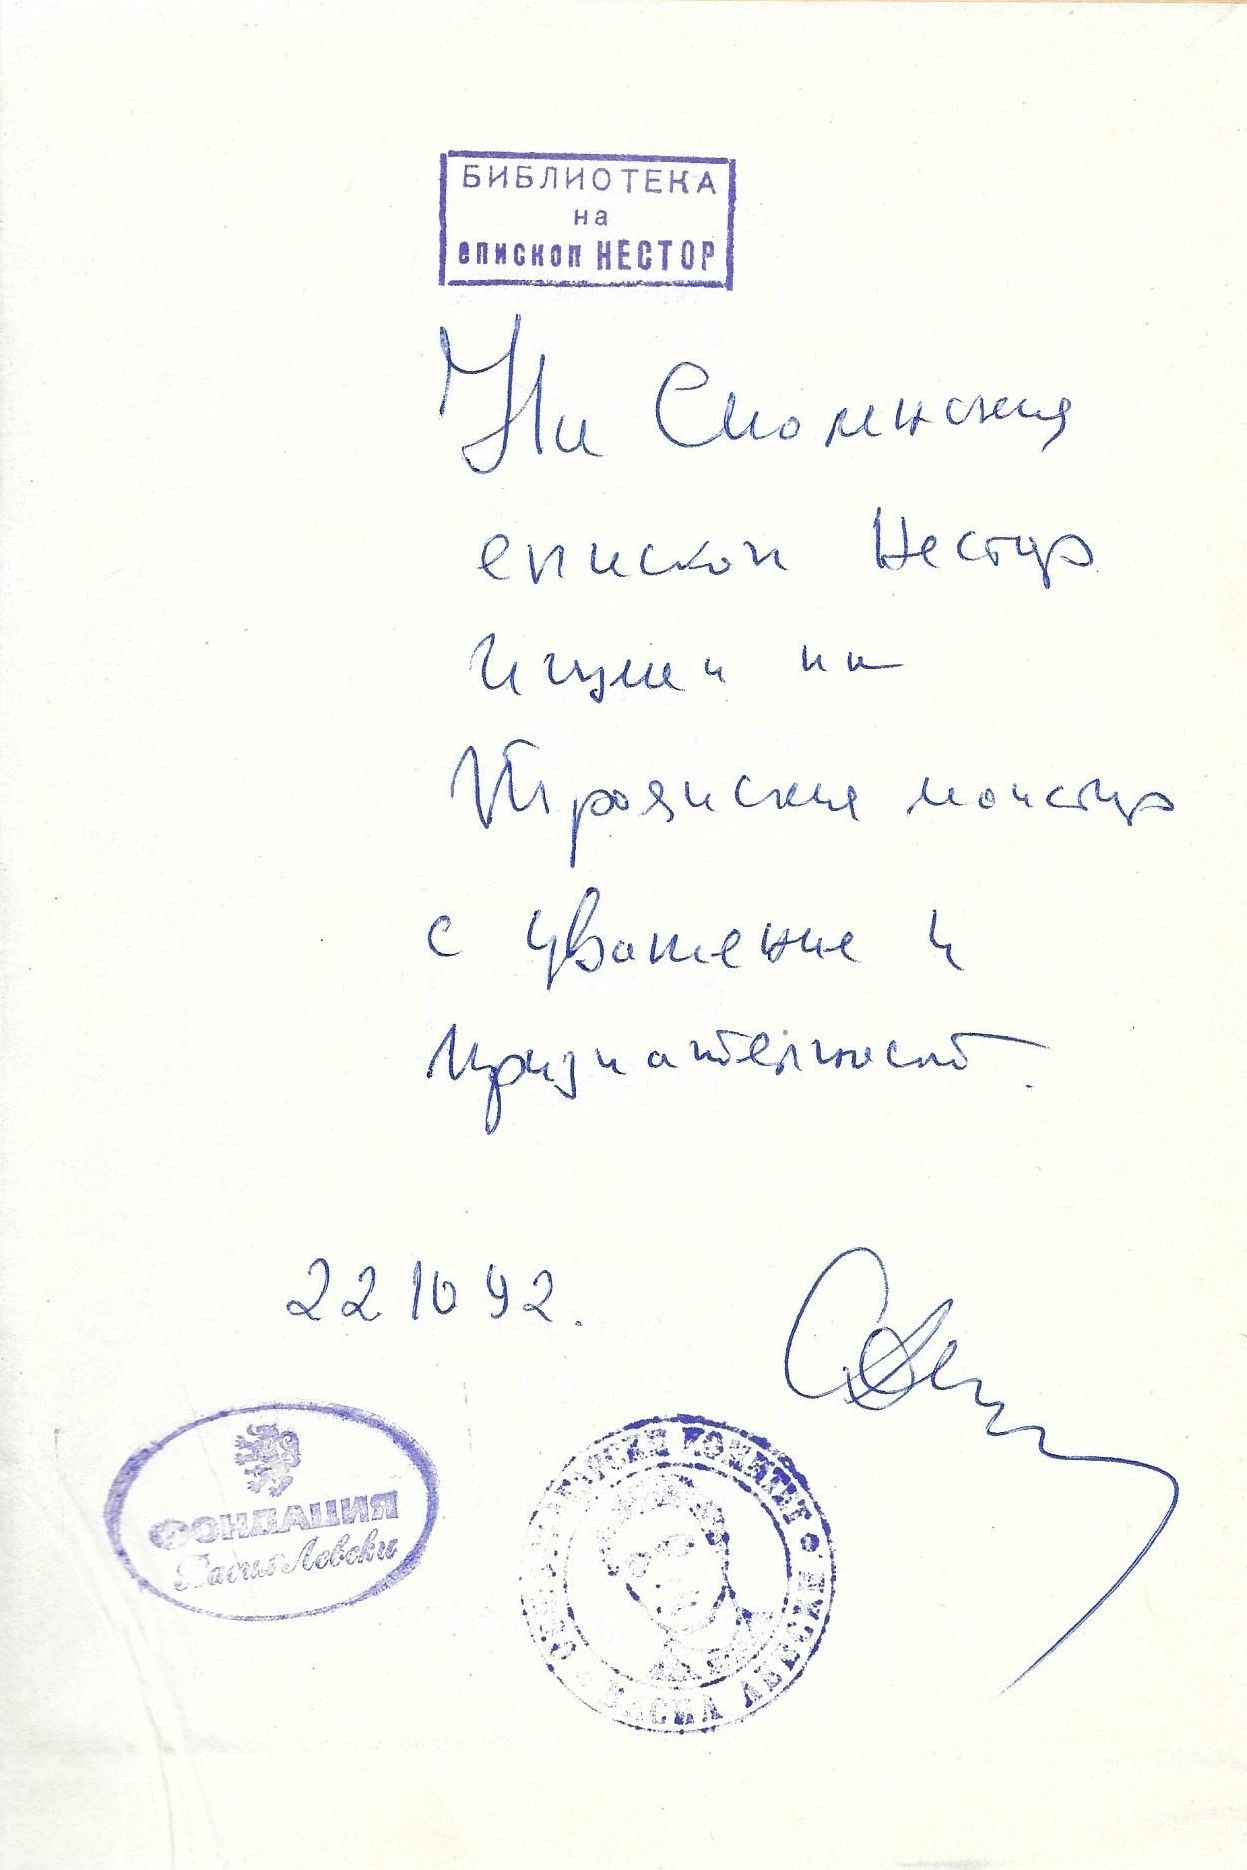 БИБЛИОТЕКА
на
епископ НЕСТОР
На Смоленския
епископ Нестор
Игумен на
Троянския монастир
с уважение и
признателност.
22 10 92.
ФОНДАЦИЯ
Васил Левски
КОМИТЕТ
ВАСИЛ ЛЕВСКИ